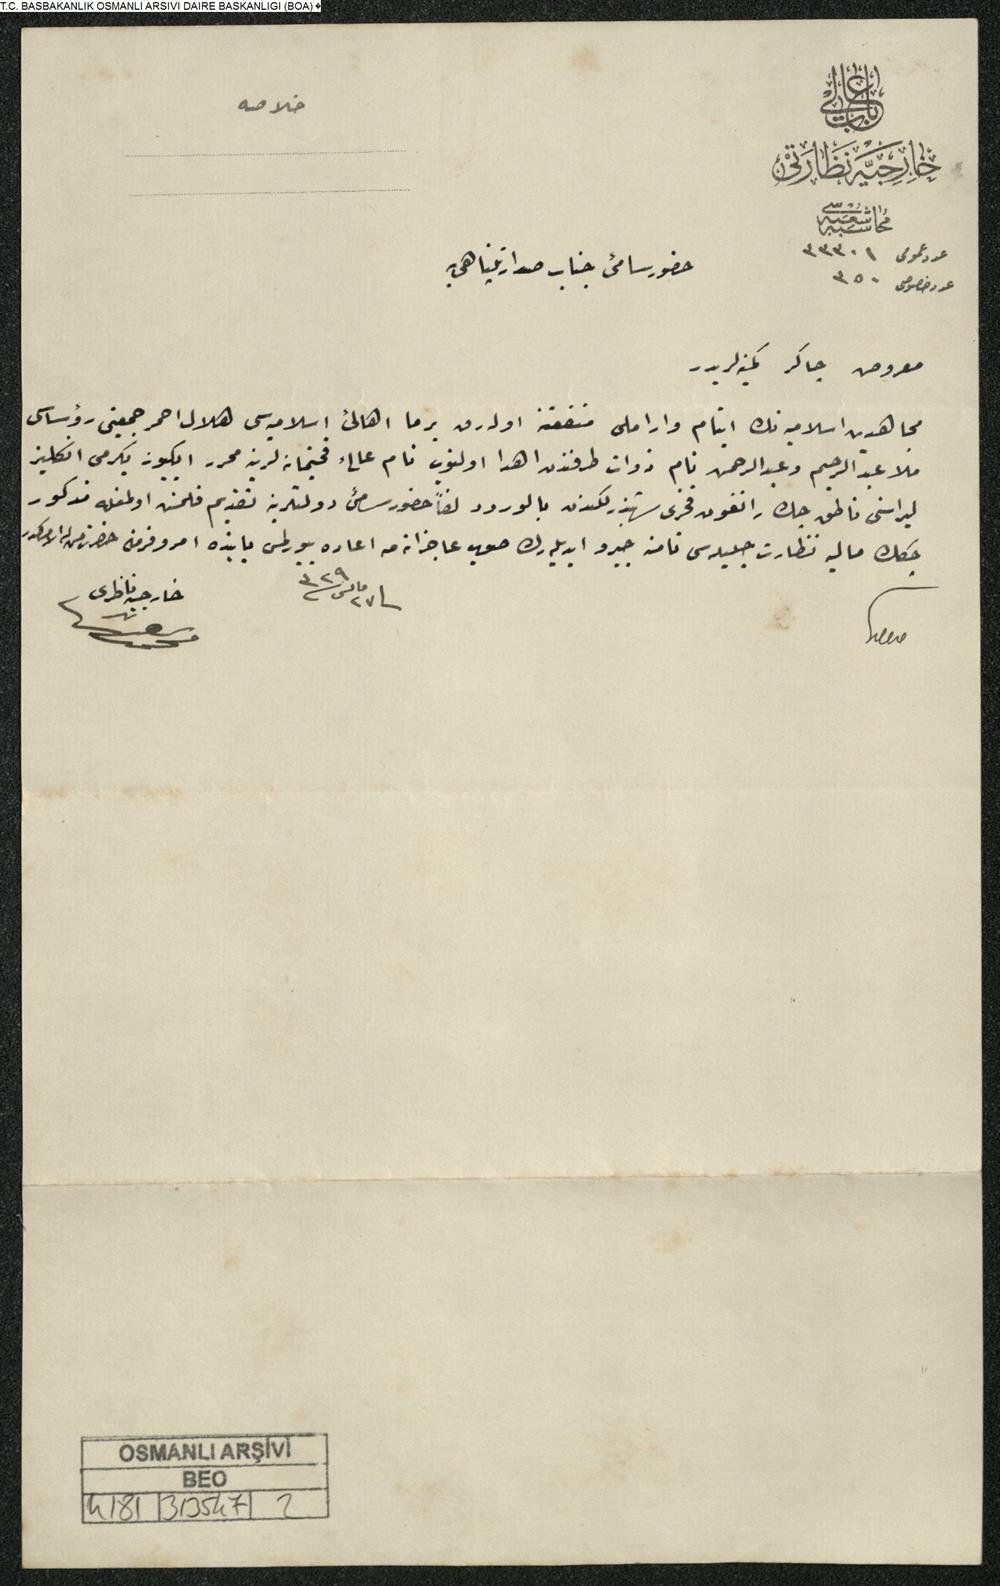 T.C. BASBAKANLIK OSMANLI ARSIVI DAIRE BASKANLIGI (BOA)
باب عالی
خارجیه نظارتی
محاسبه شعبه سی
عدد عمومی ٣٣٣٠١
عدد خصوصی ٣٥٠
خلاصه
حضور سامئ جناب صدارتپناهی يه
معروض چاكر كمينه لريدر
مجاهدين اسلاميه نك ايتام واراملی منفعتنه اوله رق برما اهالئ اسلاميه سی هلال احمر جمعيتی رؤساسی
ملا عبد الرحيم وعبد الرحمن نام ذوات طرفندن اهدا اولنوب نام عالئ فخيمانه لرينه محرر ايكيوز يكرمی انكليز
ليراسنی ناطق چك رانغون فخری شهبندرلكندن بالورود لفاً حضور سامئ دولتلرينه تقديم قلنمش اولمغله مذكور
چكك ماليه نظارت جليله سی نامنه جيرو ايديله رك صوب عاجزانه مه اعاده بيورلمسی بابنده امر وفرمان حضرت من له الامركدر
فی ٢٧ مايس سنه ٣٢٩
خارجيه ناظری
OSMANLI ARŞİVİ
BEO
4181 313547 2